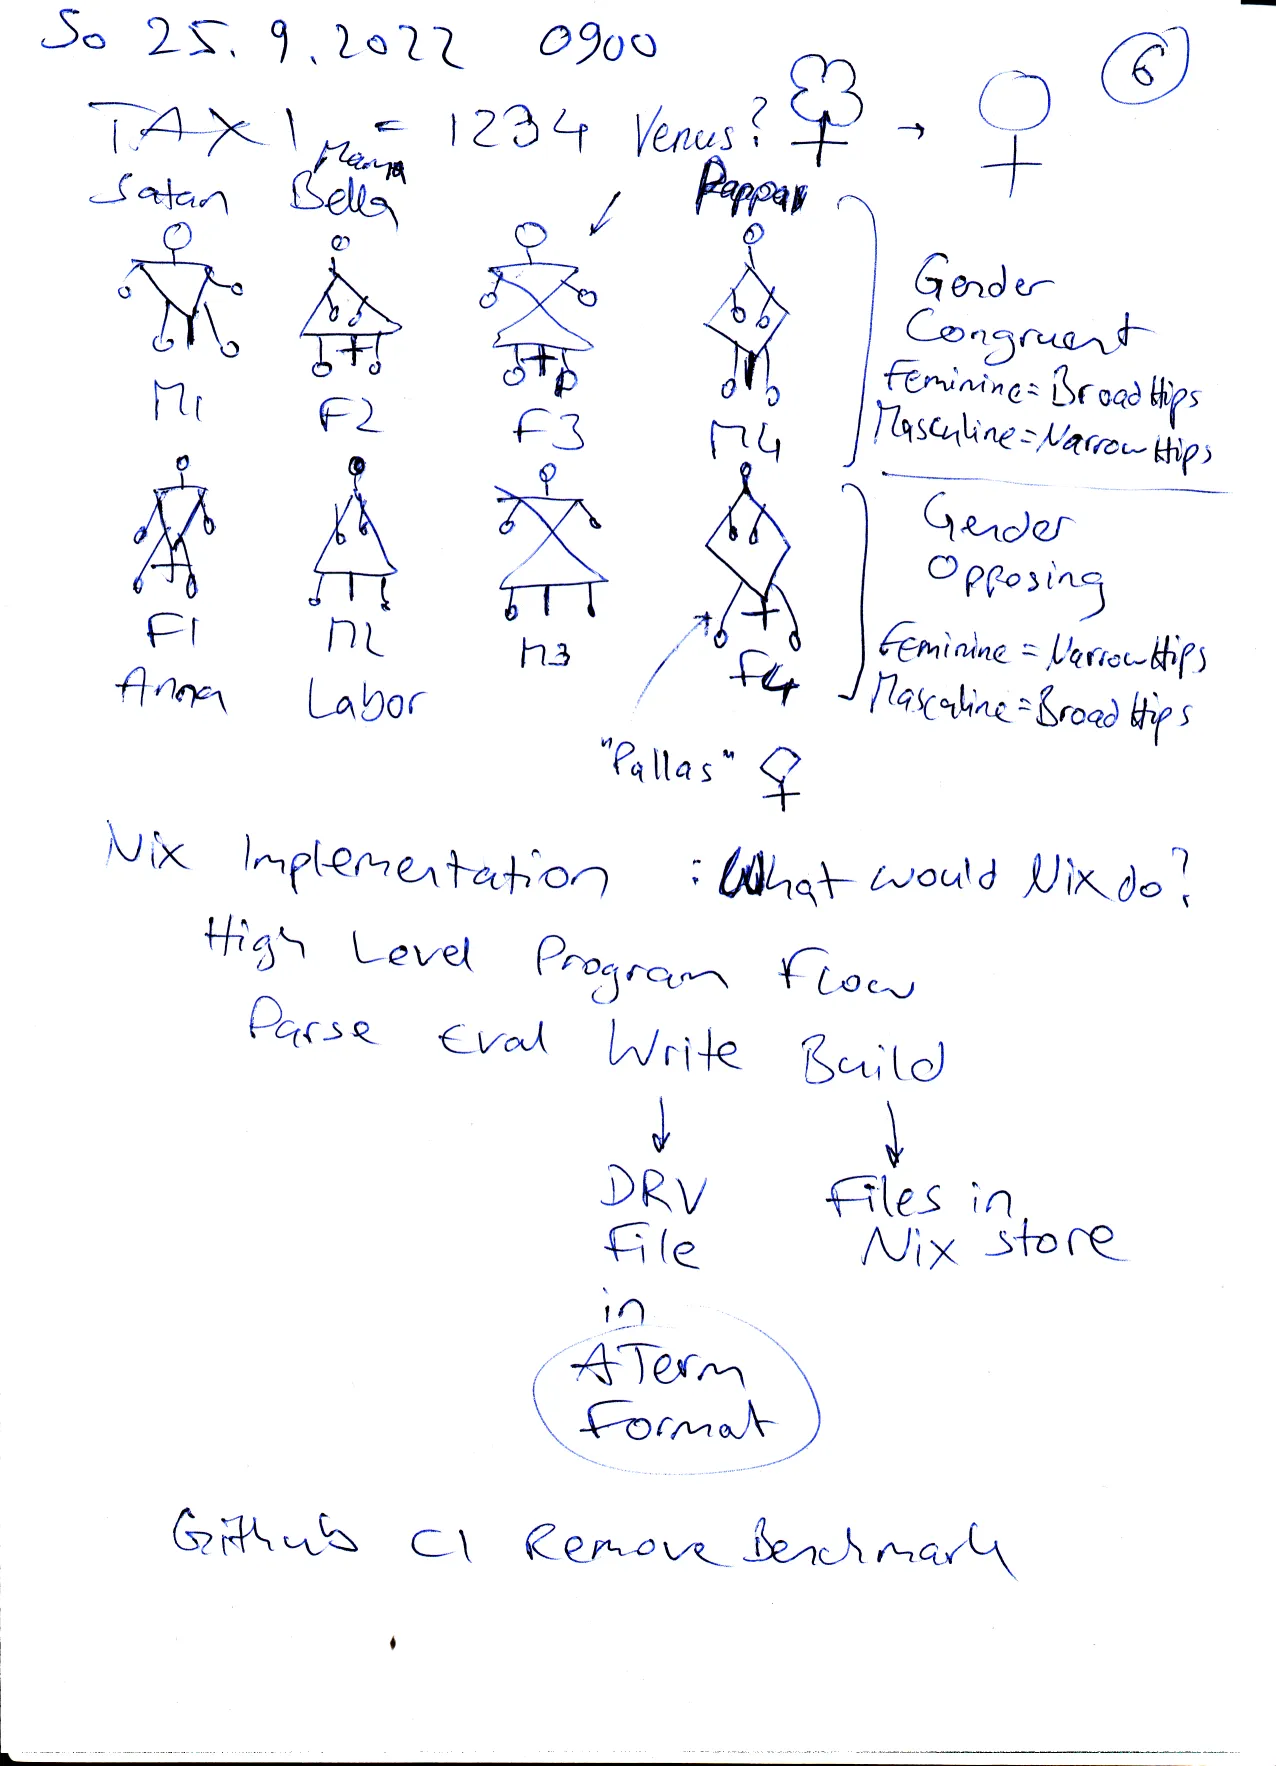 So 25.9.2022 0900
6
TAXI = 1234 Venus? ♀ → ♀
Mama
Satan Bella Pappa
M1 F2 F3 M4
Gender
Congruent
Feminine = Broad Hips
Masculine = Narrow Hips
F1 M2 M3 F4
Anna Labor
Gender
Opposing
Feminine = Narrow Hips
Masculine = Broad Hips
"Pallas"
Nix Implementation : What would Nix do?
High Level Program Flow
Parse Eval Write Build
↓ ↓
DRV Files in
File Nix store
in
ATerm
Format
Github CI Remove Benchmark